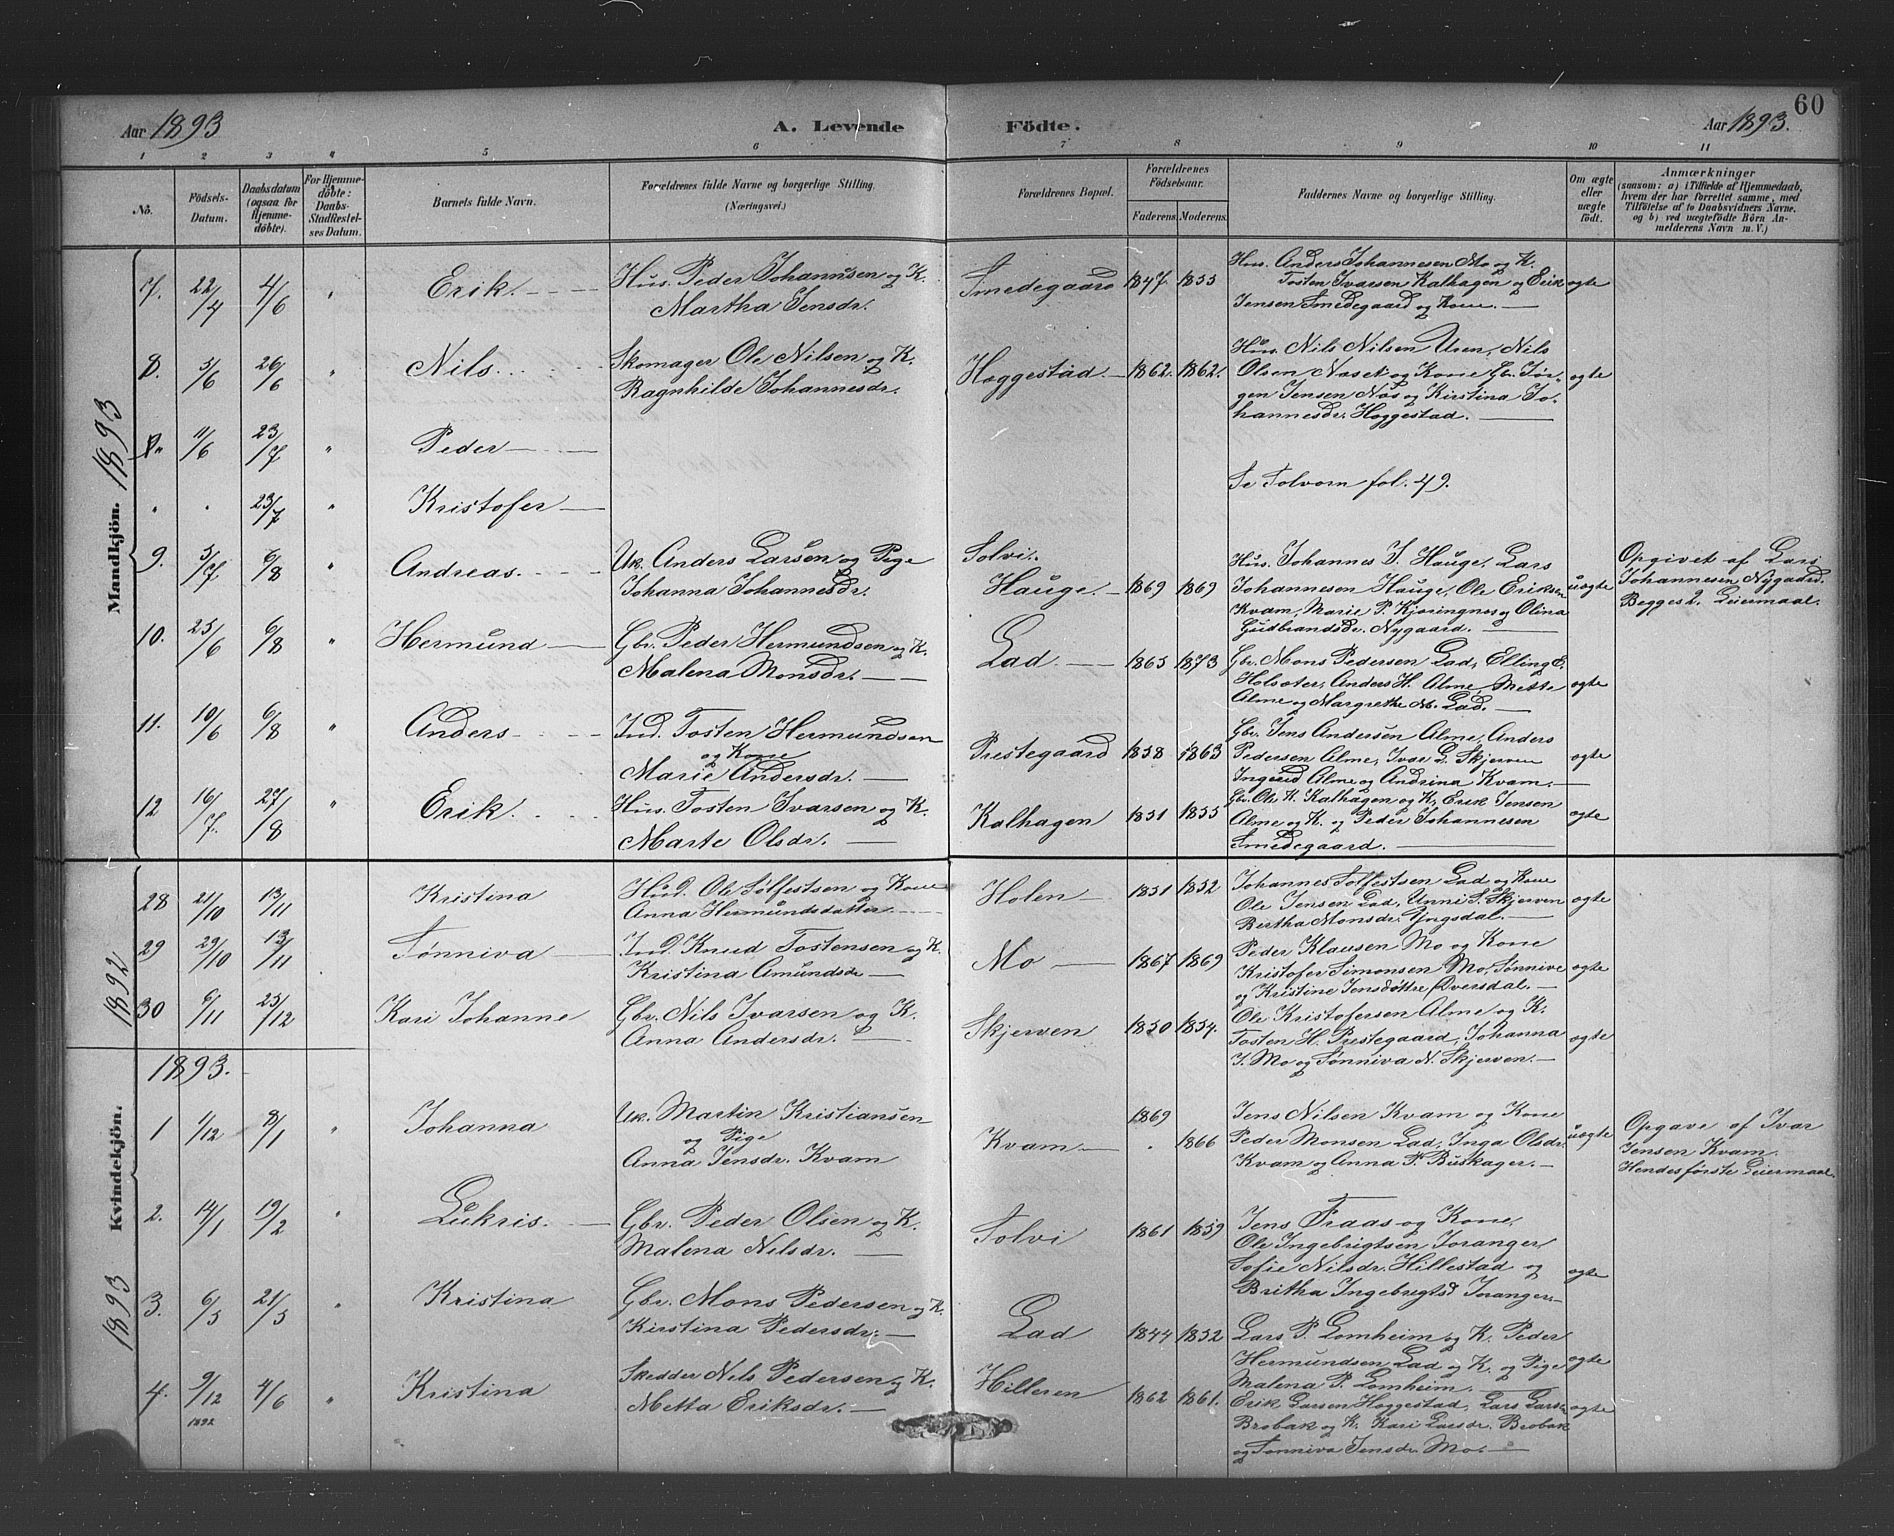 60
Aar 1893
A. Levende Födte.
Aar 1893.
1 2 3 " 5 6 7 8 9 10 11
No.
Födsels-Datum.
Daabsdatum (ogsaa for Hjemme-döbte).
For Hjemme-döbte: Daabs-Stadfæstel-ses Datum.
Barnets fulde Navn.
Forældrenes fulde Navne og borgerlige Stilling.
(Næringsvei.)
Forældrenes Bopæl.
Forældrenes Födselsaar.
Faderens. Moderens.
Faddernes Navne og borgerlige Stilling.
Om ægte eller uægte födt.
Anmærkninger
(saasom: a) i Tilfælde af Hjemmedaab, hvem der har forrettet samme, med Tilföielse af to Daabsvidners Navne. og b) ved uægtefödte Börn Anmelderens Navn m. V.)
Mandkjön. 1893
7. 22/4 4/6 " Erik. Hus. Peder Johannesen og K.
Martha Jensdr.
Smedegaard 1847 1855
Hus. Anders Johannesen Mo og K.
Tosten Ivarsen Kalhagen og Erik
Jensen Smedegaard og Kone.
ægte
8. 5/6 26/6 " Nils. Skomager Ole Nilsen og K.
Ragnhilde Johannesdr.
Hæggestad. 1862. 1862.
Hus. Nils Nilsen Uren, Nils
Olsen Næset og Kone Gbr. Jør-
gen Jensen Næs og Kirstina Jo-
hannesdr. Hæggestad.
ægte
11/6 23/7 " Peder
" " 23/7 " Kristofer
Se Solvorn fol. 49.
9. 5/7 6/8 " Andreas. Uk. Anders Larsen og Pige
Johanna Johannesdr.
Solvi.
Hauge. 1869 1869
Hus. Johannes J. Hauge, Lars
Johannesen Hauge, Ole Eriksen
Kvam, Marie P. Kjøringnes og Olina
Gudbrandsdr. Nygaard.
uægte
Opgivet af Lars
Johannesen Nygaard.
Begges 2. Leiermaal.
10. 25/6 6/8 " Hermund Gbr. Peder Hermundsen og K.
Malena Monsdr.
Lad. 1865 1873
Gbr. Mons Pedersen Lad, Elling E.
Holsæter, Anders H. Alme, Mette
Alme og Margrethe M. Lad.
ægte
11. 10/6 6/8 " Anders Ind. Tosten Hermundsen
og Kone
Marie Andersdr.
Prestegaard 1858 1863
Gbr. Jens Andersen Alme, Anders
Pedersen Alme, Ivar L. Skjerven
Ingerid Alme og Andrina Kvam.
ægte
12 16/7 27/8 " Erik. Hus. Tosten Ivarsen og K.
Marte Olsdr.
Kalhagen 1851 1855
Gbr. Ole K. Kalhagen og K, Erik Jensen
Alme og K. og Peder Johannesen
Smedegaard.
ægte
1892
28 21/10 13/11 Kristina Husd. Ole Sølfestsen og Kone
Anna Hermundsdatter.
Holen 1851 1852
Johannes Solfestsen Lad og Kone
Ole Jensen Lad, Anni S. Skjerven
Bertha Monsdr. Yngsdal.
ægte
29 29/10 13/11 Sønniva Ind. Knud Tostensen og K.
Kristina Amundsdr
Mo 1867 1869
Peder Klausen Mo og Kone
Kristofer Simonsen Mo, Sønnive
og Kristine Jensdøttre Kversdal.
ægte
30 6/11 25/12 Kari Johanne Gbr. Nils Ivarsen og K.
Anna Andersdr.
Skjerven 1850 1854.
Ole Kristofersen Alme og K.
Tosten H. Prestegaard, Johanna
J. Mo og Sønniva N. Skjerven.
ægte
1893.
Kvindekjön. 1893
1 1/12 8/1 " Johanna Uk. Martin Kristiansen
og Pige
Anna Jensdr. Kvam
Kvam 1869 1866
Jens Nilsen Kvam og Kone
Peder Monsen Lad, Inga Olsdr.
Kvam og Anna P. Buskager.
uægte
Opgave af Ivar
Jensen Kvam.
Hendes første Leiermaal
2. 14/1 19/2 " Lukris. Gbr. Peder Olsen og K.
Malena Nilsdr.
Solvi 1861 1859
Jens Fraas og Kone,
Ole Ingebrigtsen Joranger
Sofie Nilsdr. Hillestad og
Britha Ingebrigtsd Joranger.
ægte
3. 6/5 21/5 " Kristina Gbr. Mons Pedersen og K.
Kirstina Pedersdr.
Lad 1844 1852
Lars P. Lomheim og K. Peder
Hermundsen Lad og K. og Pige
Malena P. Lomheim.
ægte
4. 9/12 1892 4/6 " Kristina Skrædder Nils Pedersen og K.
Metta Eriksdr.
Hilleren 1862 1861.
Erik Larsen Hæggestad, Lars Larsen
Brobak og K. Kari Larsdr. Brobak
og Sønniva Jensdr. Mo.
ægte